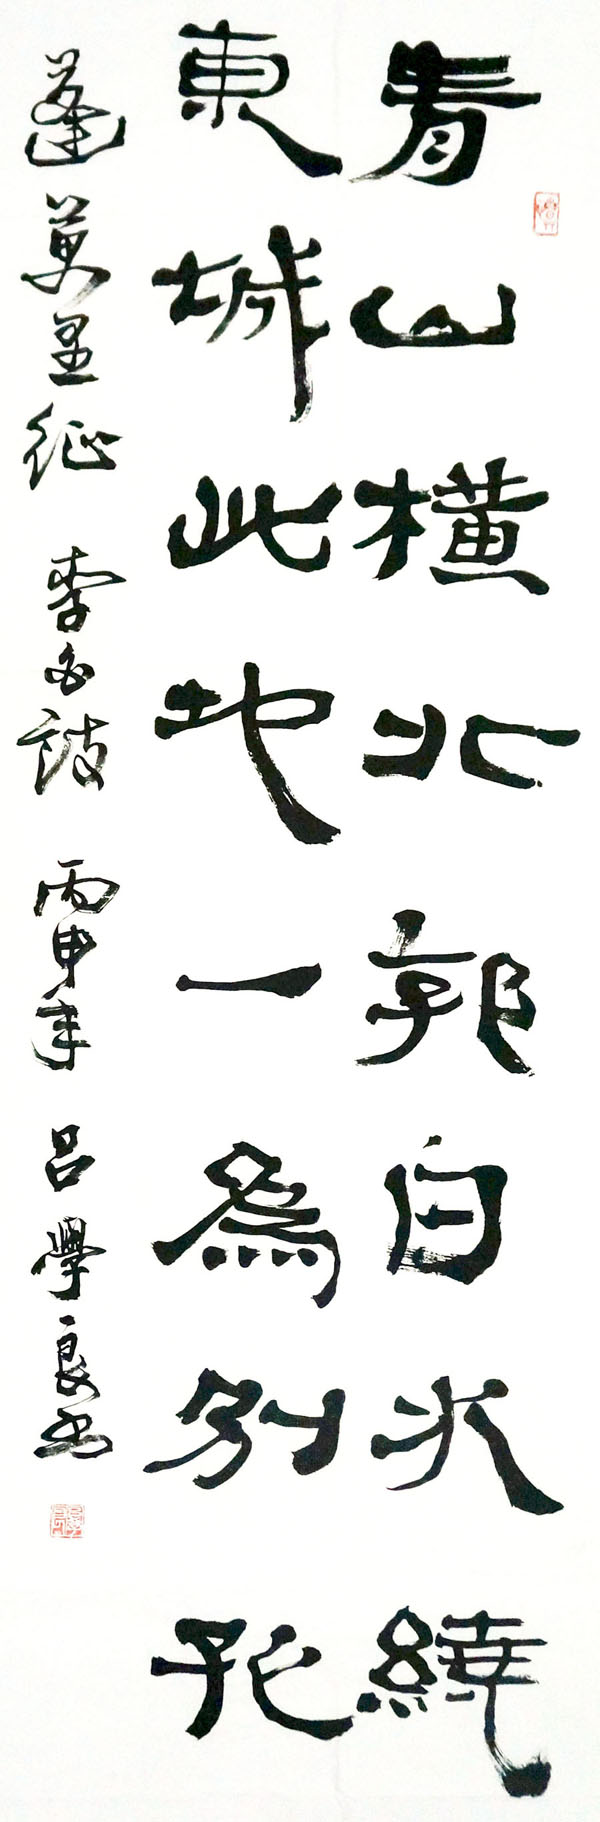 青山橫北郭白水繞
東城此地一為別孤
蓬萬里征 李白詩 丙申年 呂學良书